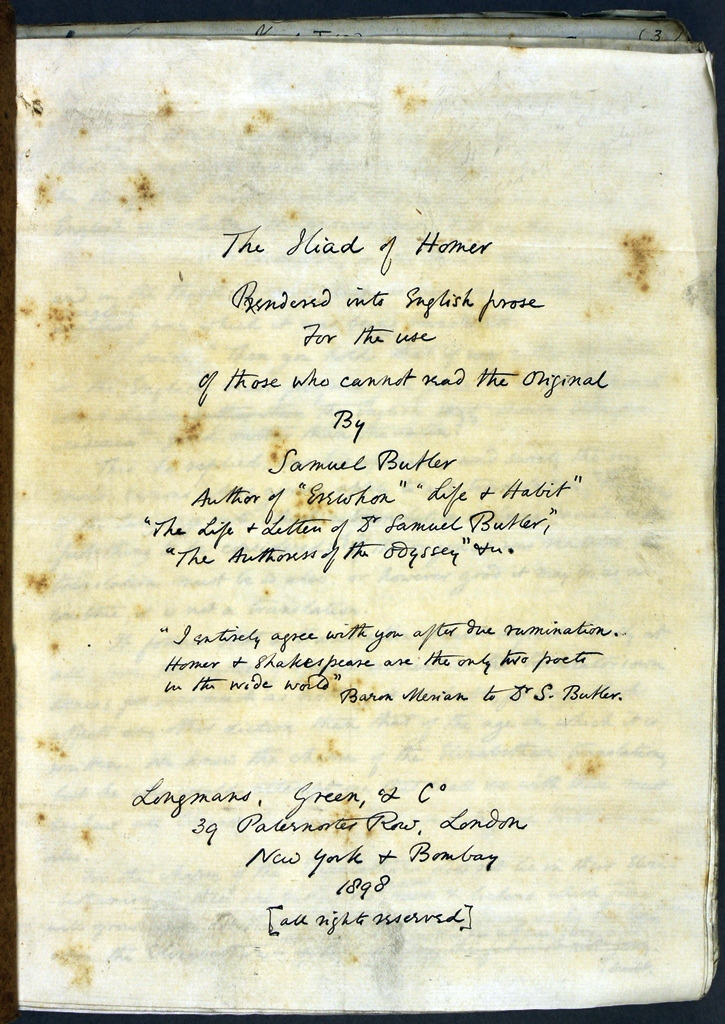 (3)
The Iliad of Homer
Rendered into English prose
For the use
of those who cannot read the original
By
Samuel Butler
Author of "Erewhon" "Life & Habit"
"The Life & Letters of Dr Samuel Butler,"
"The Authoress of the Odyssey" &c.
"I entirely agree with you after due rumination.
Homer & Shakespeare are the only two poets
in the wide world"
Baron Merian to Dr S. Butler.
Longmans, Green, & Co
39 Paternoster Row, London
New York & Bombay
1898
[all rights reserved]